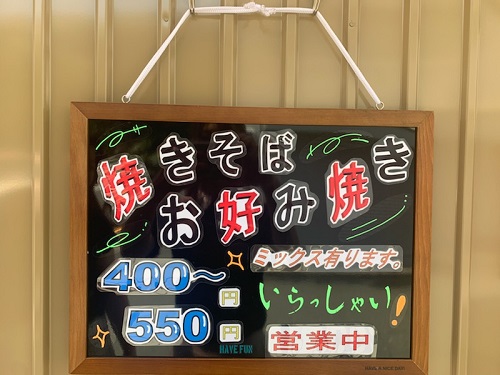 焼きそば
お好み焼き
ミックス有ります。
400〜
円
いらっしゃい!
550
円
HAVE FUN
営業中
HAVE A NICE DAY!